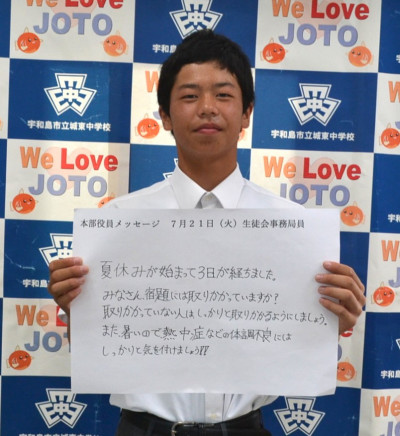 We Love
JOTO
We Love
JOTO
宇和島市立城東中学校
宇和島市立城東中学校
We Love
JOTO
We Love
JOTO
本部役員メッセージ　7月21日（火）生徒会事務局員
夏休みが始まって3日が経ちました。
みなさん、宿題には取りかかっていますか?
取りかかっていない人はしっかりと取りかかるようにしましょう。
また、暑いので熱中症などの体調不良には
しっかりと気を付けましょう!!